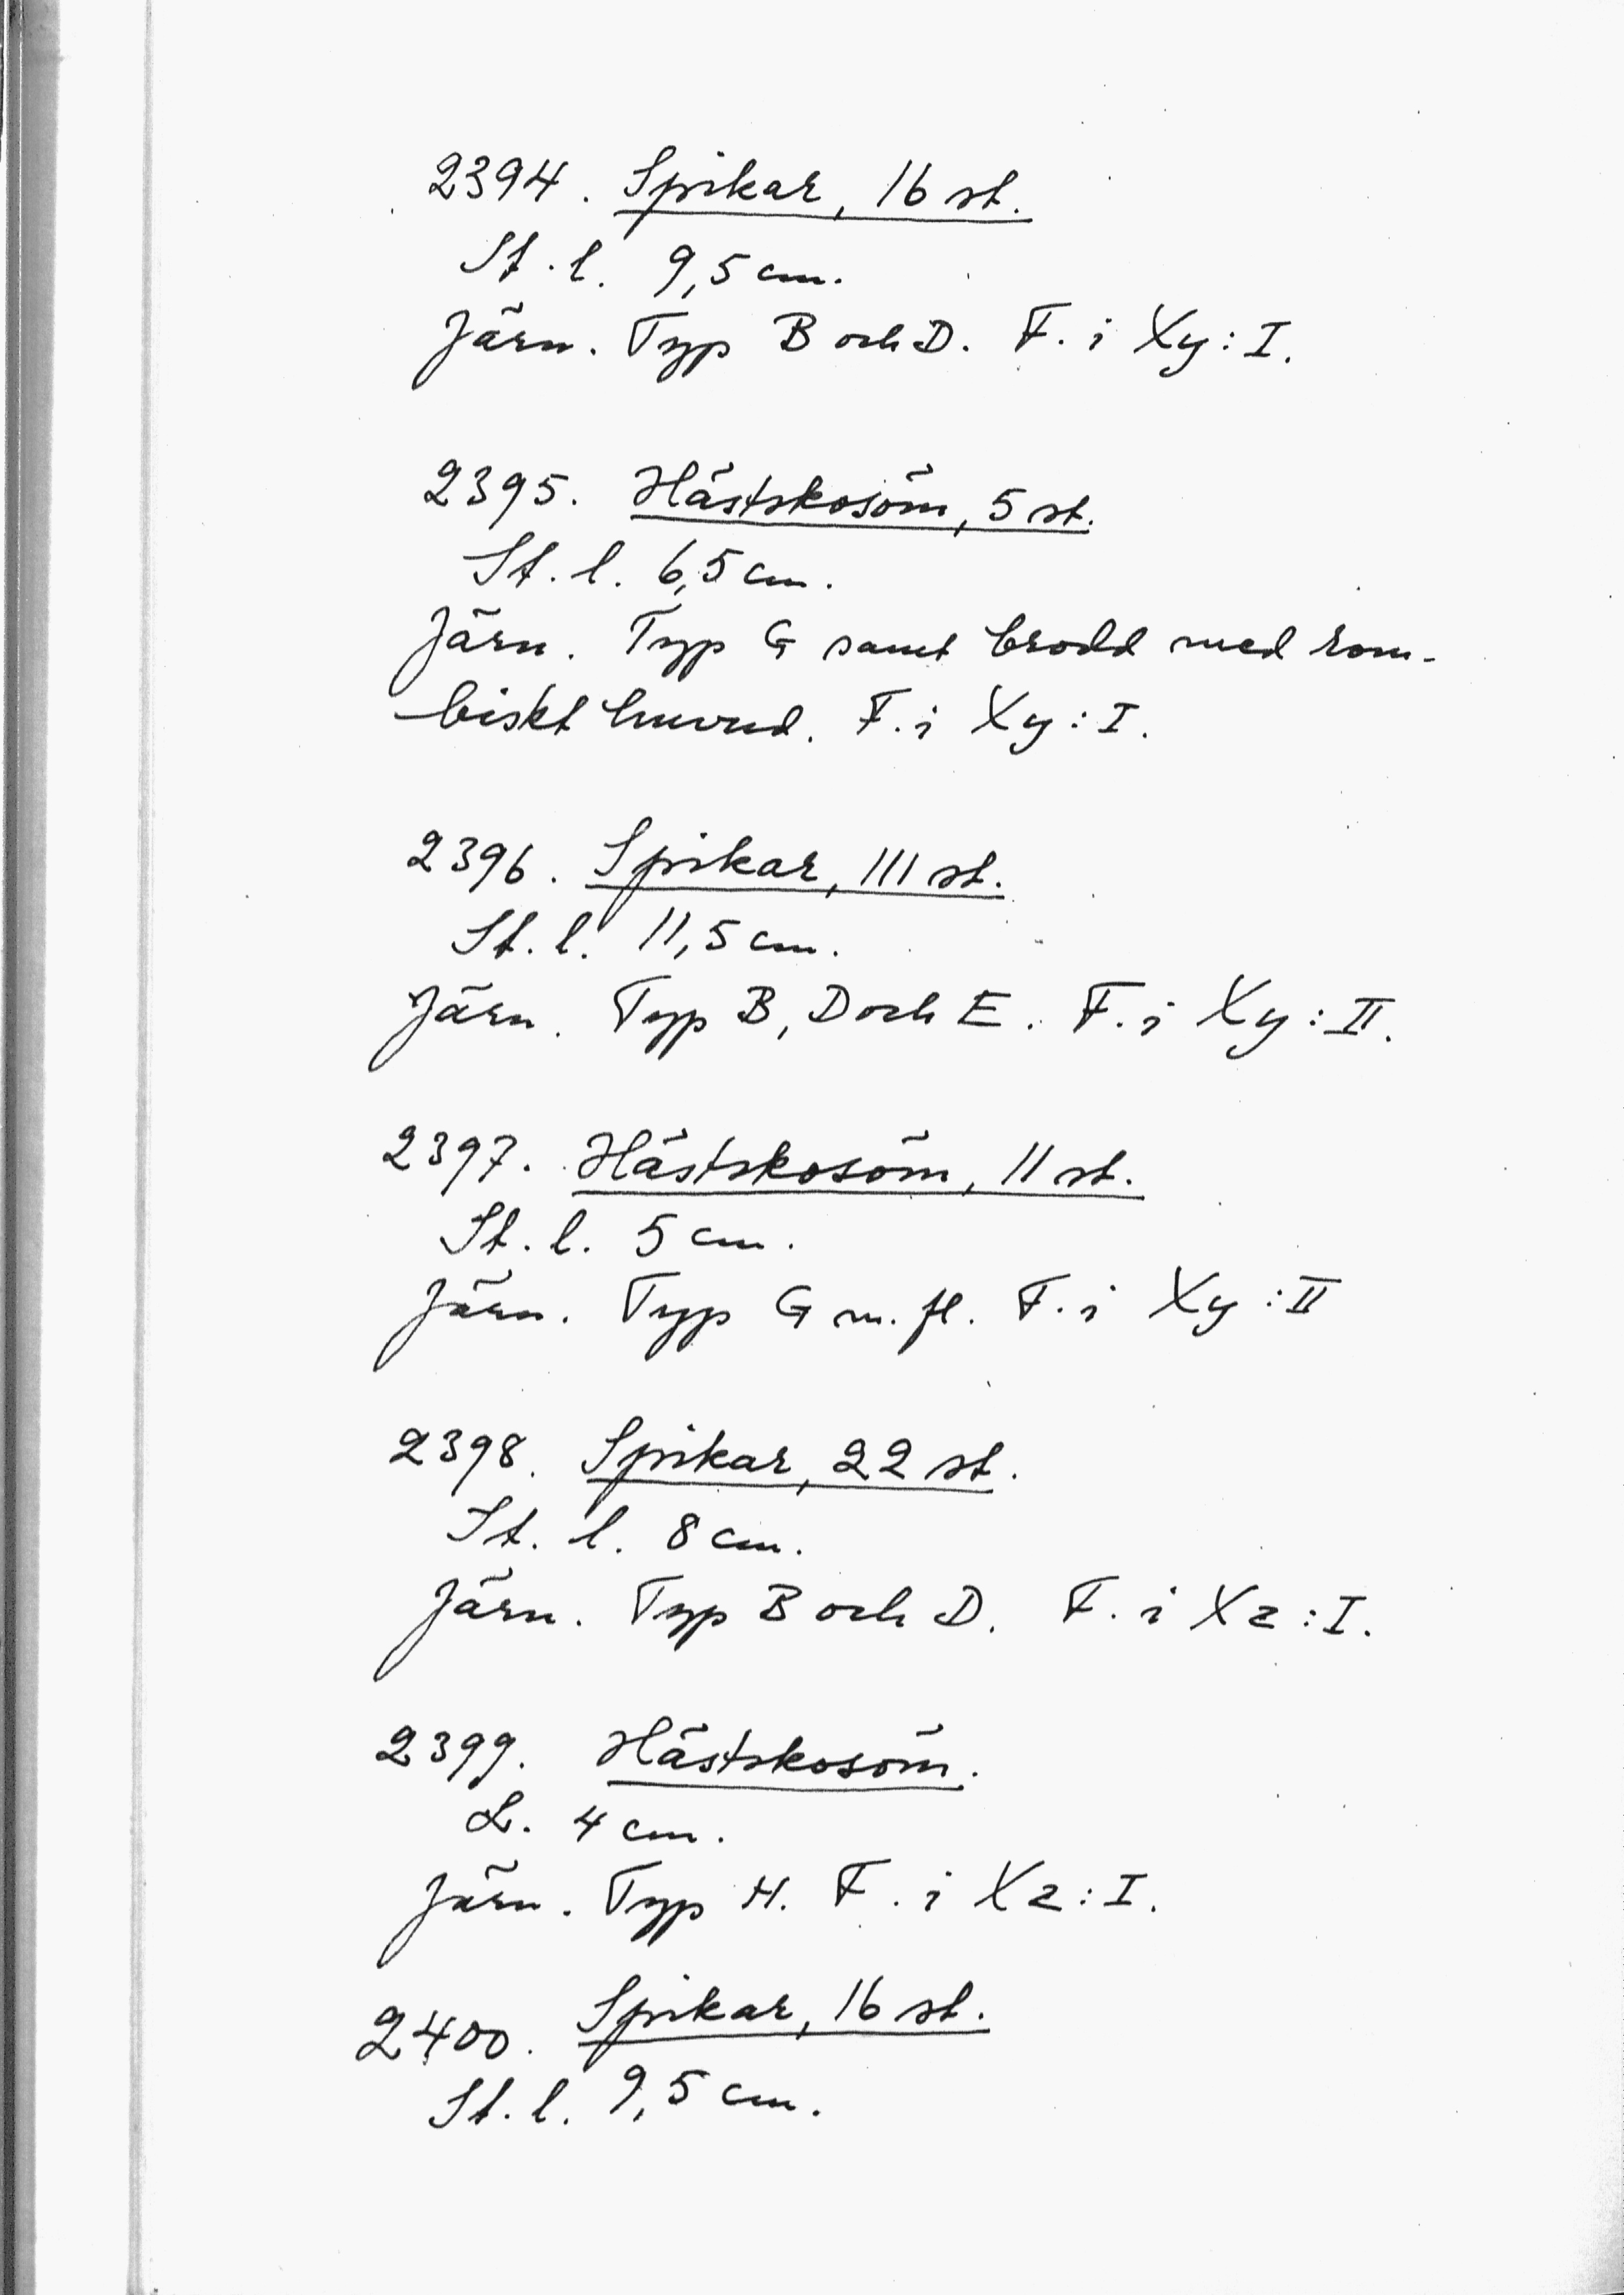 2394. Spikar, 16 st.
St. l. 9,5 cm.
Järn. Typ B och D. F. i Xy: I.
2395. Hästskosöm, 5 st.
St. l. 6,5 cm.
Järn. Typ G samt brodd med rom-
biskt huvud. F. i Xy: I.
2396. Spikar, 111 st.
St. l. 11,5 cm.
Järn. Typ B, D och E. F. i Xy: II.
2397. Hästskosöm, 11 st.
St. l. 5 cm.
Järn. Typ G m. fl. F. i Xy: II
2398. Spikar, 22 st.
St. l. 8 cm.
Järn. Typ B och D. F. i Xz: I.
2399. Hästskosöm.
L. 4 cm.
Järn. Typ H. F. i Xz: I.
2400. Spikar, 16 st.
St. l. 9,5 cm.